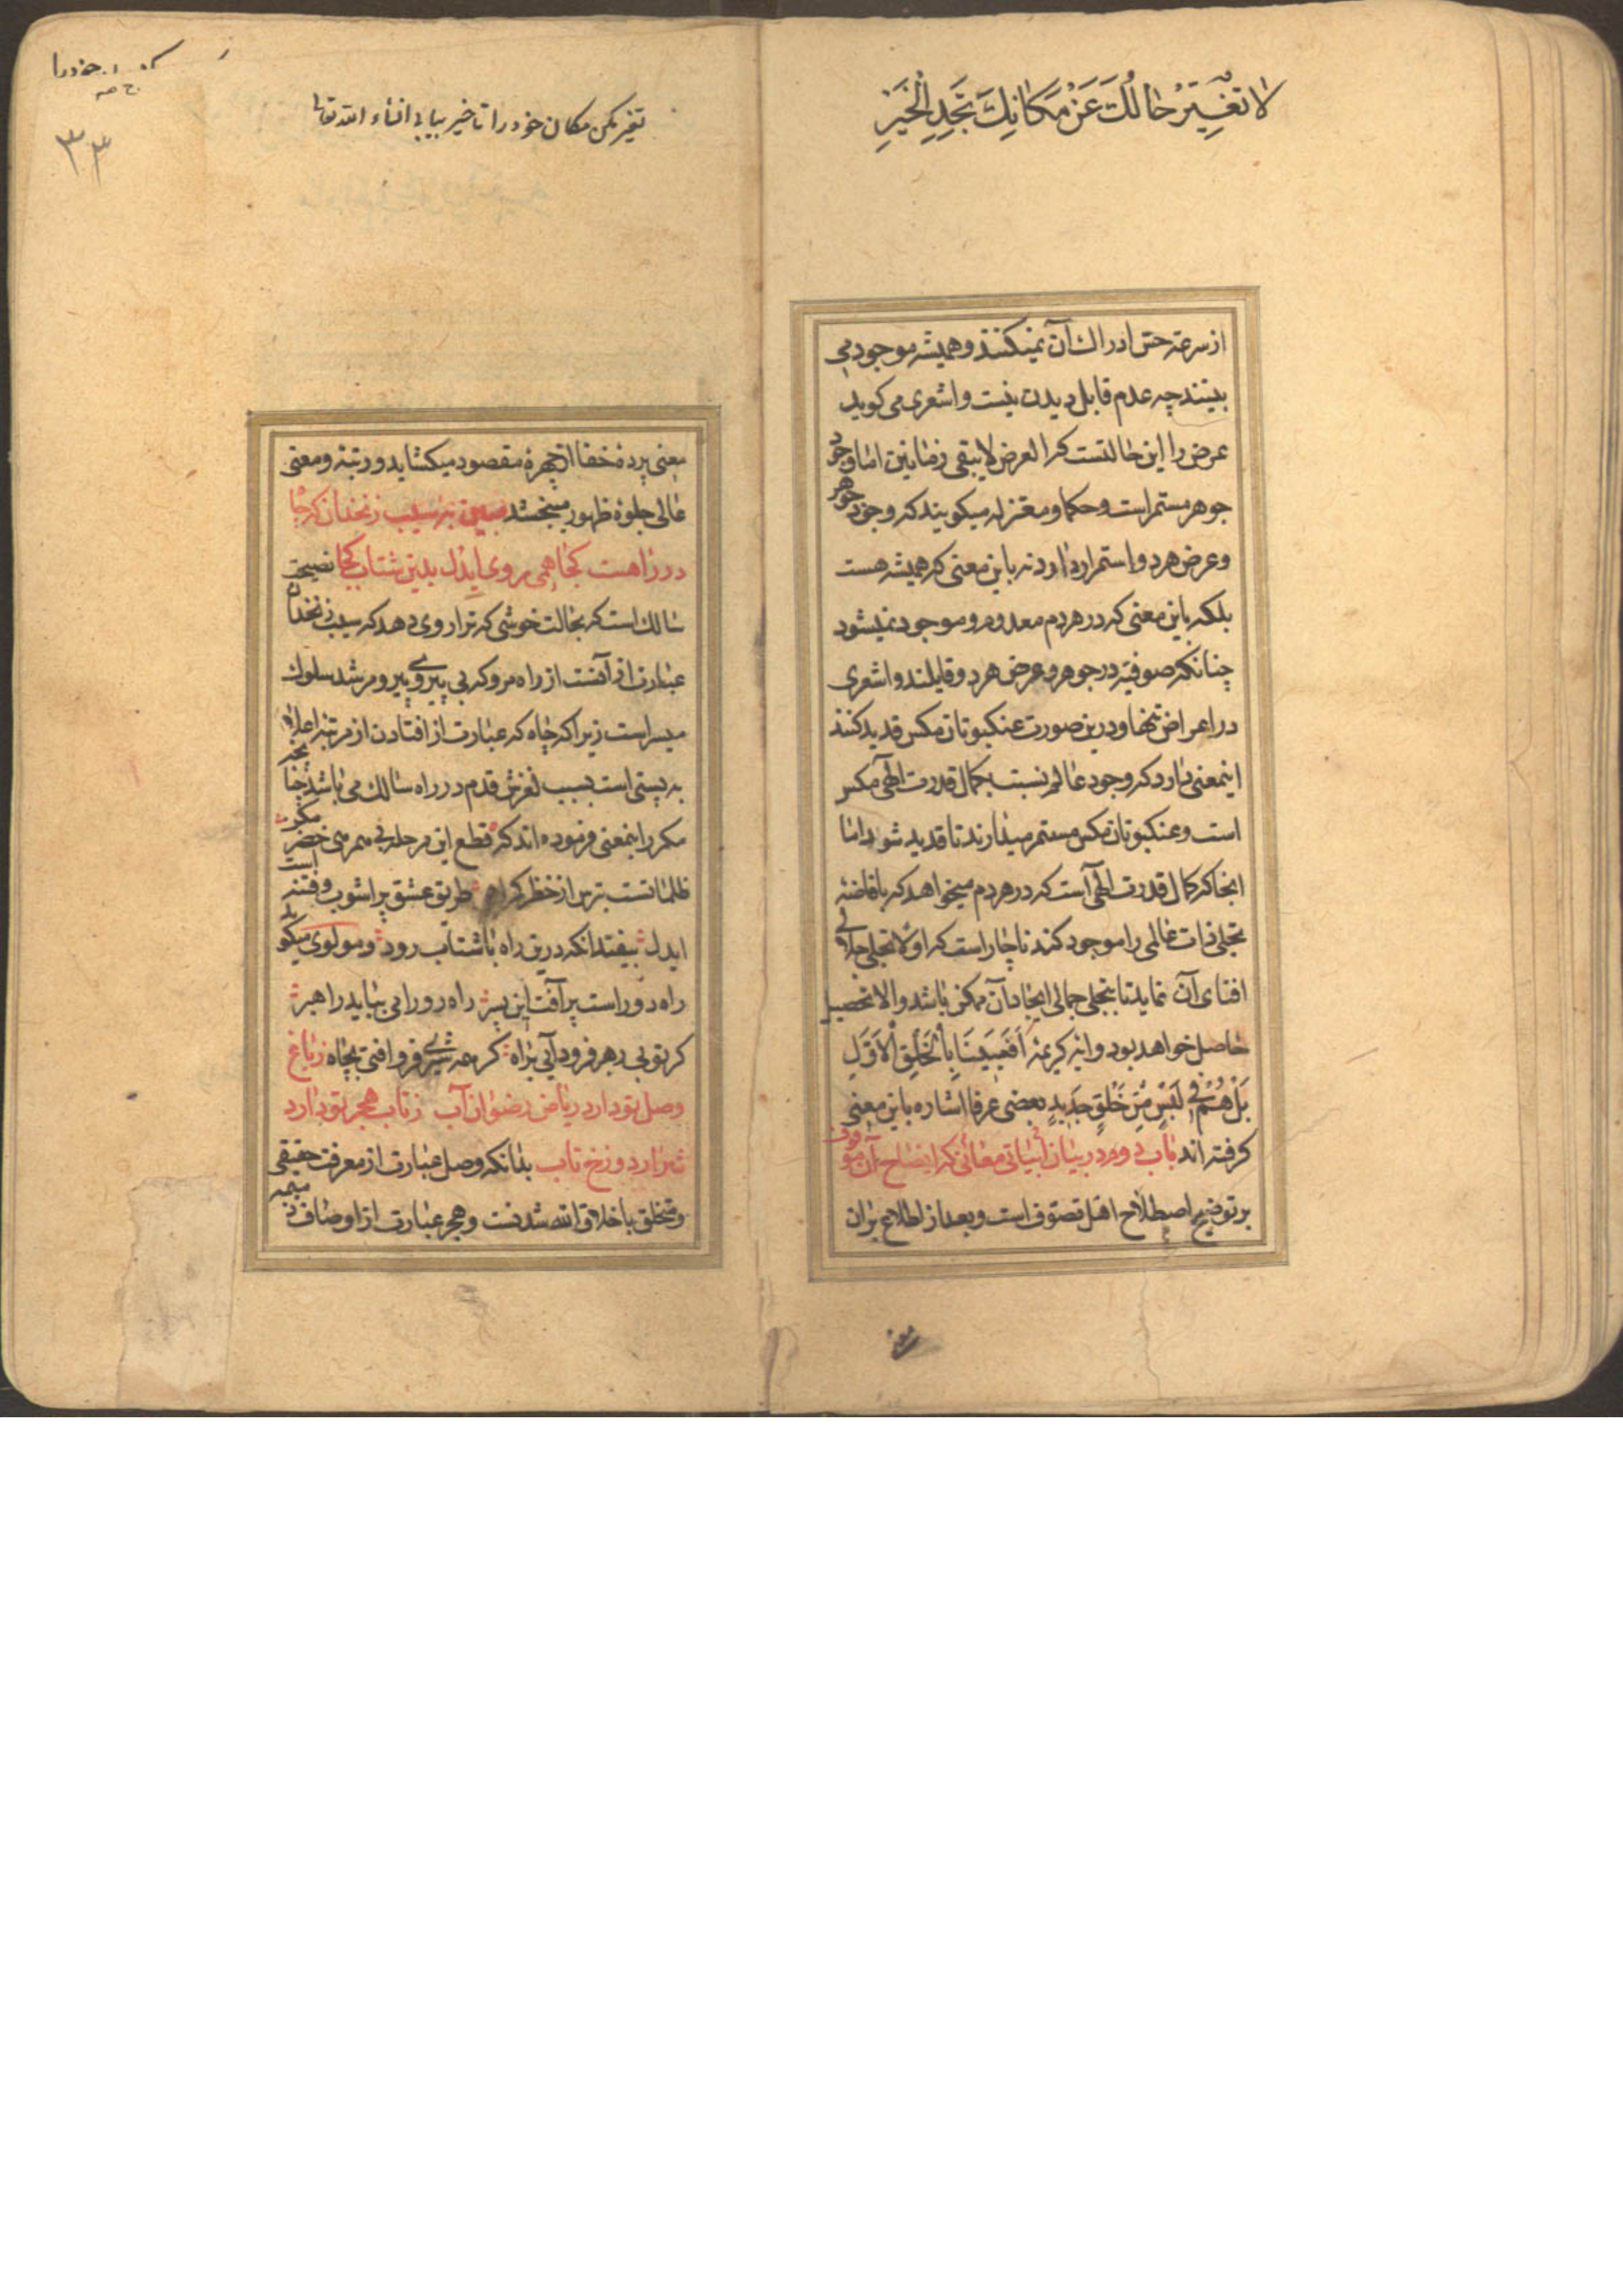 لا تغیر حالک عن مکانک تجد الخیر
از سرعة حس ادراک آن نمیکنند و همیشه موجود می
بینند چه عدم قابل دیدن نیست و اشعری می کوید
عرض را این حالتست که العرض لا یبقی زمانین اما وجود
جوهر مستمر است و حکما و معتزله میکویند که وجود جوهر
و عرض هردو استمرار دارد نه باین معنی که همیشه هست
بلکه باین معنی که در هر دم معدوم و موجود نمیشود
چنانکه صوفیه در جوهر و عرض هردو قایلند و اشعری
در اعراض تنها و درین صورت عنکبوتان مکس قدید کنند
اینمعنی دارد که وجود عالم نسبت بکمال قدرت الهی مکس
است و عنکبوتان مکس مستمر میدارند تا قدید شود اما
انجا که کمال قدرت الهی است که در هر دم میخواهد که بافاضه
تجلی ذات عالمی را موجود کند ناچار است که اولا تجلی جلالی
افنای آن نماید تا بتجلی جمالی ایجاد آن ممکن باشد والا تحصیل
حاصل خواهد بود و ایه کریمه اَفَعَیینَا بِالْخَلْقِ الْاَوَّلِ
بَلْ هُمْ فِی لَبْسٍ مِنْ خَلْقٍ جَدِیدٍ بعضی عرفا اشاره باین معنی
کرفته اند باب دوم در بیان ابیاتی معانی که ایضاح آن موقوف
بر توضیح اصطلاح اهل تصوف است و بعد از اطلاع بران
معنی
خود را
۳۳
تغیر مکن مکان خود را تا خیر بیابی انشاء الله تعالی
معنی پرده خفا از چهره مقصود میکشاید و رتبه و معنی
عالی جلوه ظهور میبخشد مبین به سیب زنخدان که چاه
در راهست کجا همی روی ایدل بدین شتاب کجا نصیحت
سالک است که بحالت خوشی که ترا روی دهد که سیب زنخدان
عبارت از آنست از راه مرو که بی پیروی پیر و مرشد سلوک
میسر است زیرا که چاه که عبارت از افتادن از مرتبه اعلاه
به پستی است بسبب لغزش قدم در راه سالک می باشد چنانچه
مکرر اینمعنی فرموده اند که قطع این مرحله بی همرهی خضر مکن
ظلماتست بترس از خطر کمراهی طریق عشق پر اشوب و فتنه است
ایدل بیفتد انکه درین راه باشتاب رود و مولوی میکوید
راه دور است پر آفت این پسر راه دور را می بباید راهبر
کر تو بی رهبر فرود آیی براه کر همه شیری فرو افتی بچاه ز باغ
وصل تو دارد ریاض رضوان آب ز تاب هجر تو دارد
شرار دوزخ تاب بدانکه وصل عبارت از معرفت حقیقی
و متخلق باخلاق الله شدنست و هجر عبارت از اوصاف ذمیمه